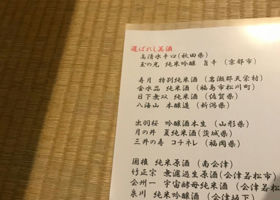 選ばれし美酒
高清水辛口(秋田県)
玉の光 純米吟醸 (京都市)
寿月 特別純米酒 (岩瀬郡天栄村)
金水晶 純米酒 (福島市松川町)
日下無双 純米酒 (佐賀県)
八海山 本醸造 (新潟県)
出羽桜 吟醸酒本生 (山形県)
月の井 夏純米酒(茨城県)
三井の寿 コチネレ (福岡県)
国権 純米原酒 (南会津)
竹正宗 無濾過生原酒(会津若松市)
会州一 宇宙酵母純米酒 (会津若松
泉川 純米吟醸 (会津坂下)